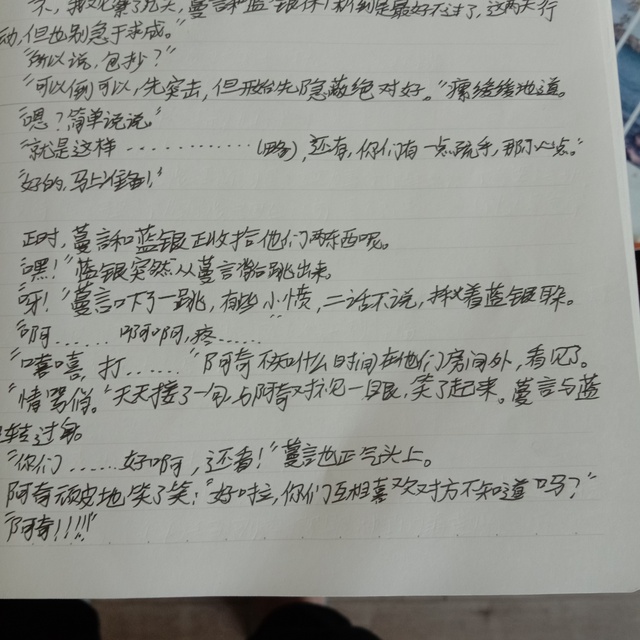 "不,我又化募了几天,蔓言和蓝银保
动,但也别急于求成。"
"所以说,包抄?"
"可以倒可以,先突击,但开始先隐蔽绝对好。"缓缓地道。
"嗯?简单说说。"
"就是这样…………(略),还有,你们有一点疏手,那小心点。"
"好的,马上准备!"
正时,蔓言和蓝银正收拾他们两东西呢。
"嘿!"蓝银突然从蔓言背后跳出来。
"呀!"蔓言吓了一跳,有些小愤,二话不说,揪着蓝银耳朵。
"啊……啊啊,疼……"
"嘻嘻,打……"阿奇不知什么时间在他们房间外,看见了。
"情骂俏。"天天接了一句,与阿奇对视一眼,笑了起来。蔓言与蓝
转过身。
"你们……好啊,还看!"蔓言也正气头上。
阿奇顽皮地笑了笑:"好啦,你们互相喜欢对方不知道吗?"
"阿奇!!!!"